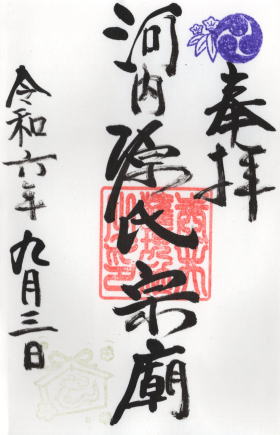 奉拝
河内源氏宗廟
令和六年九月三日